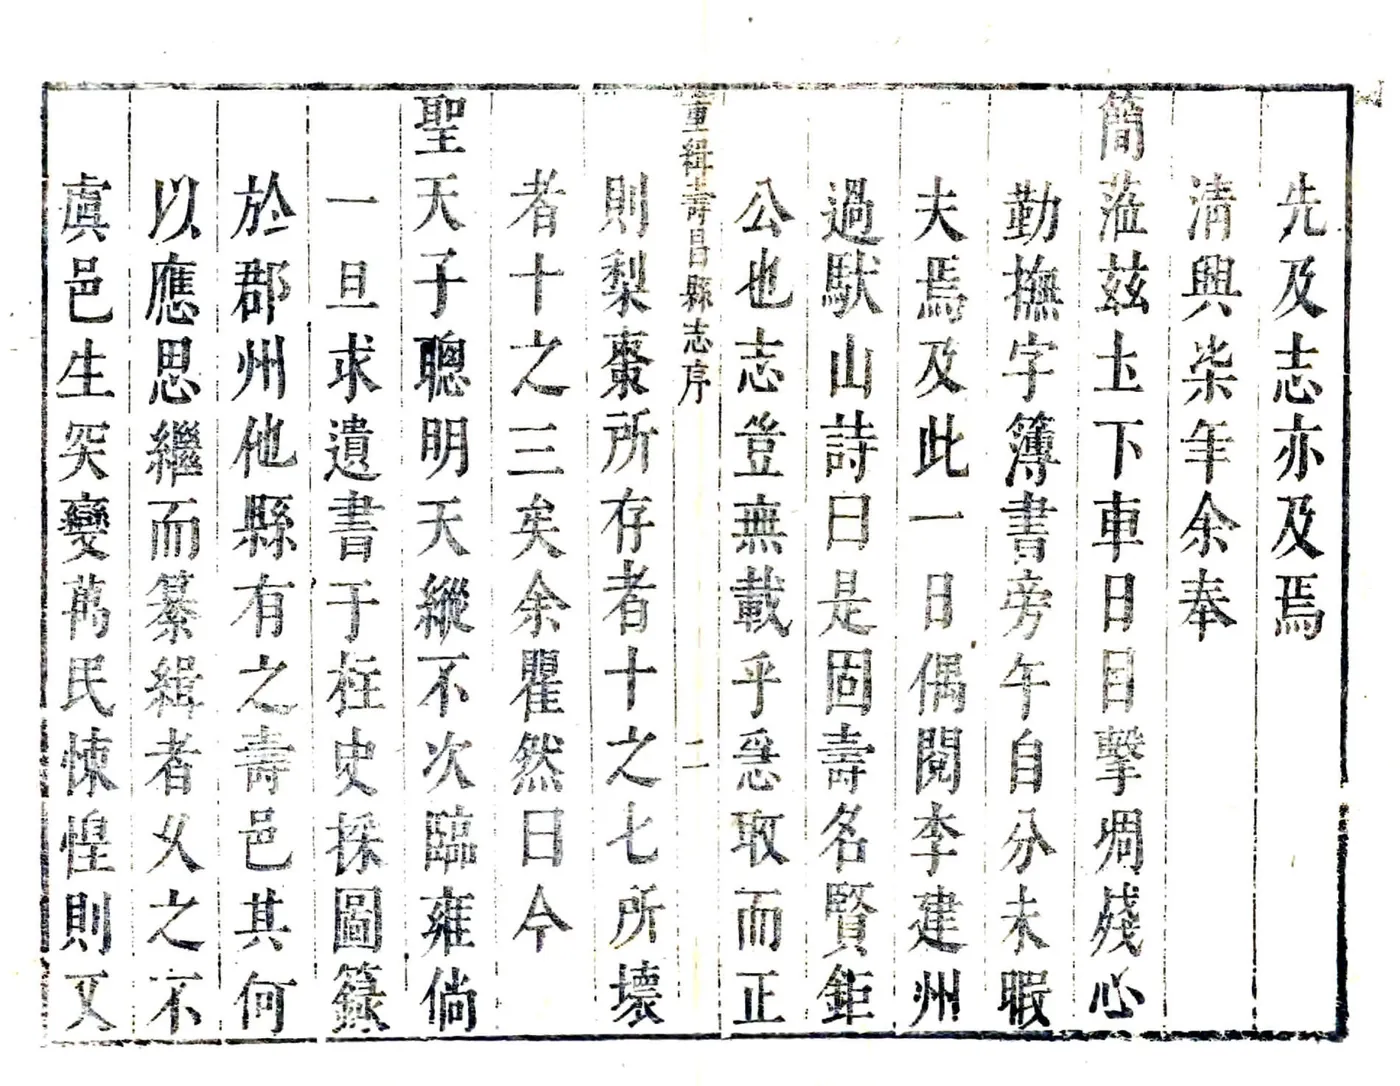 先及志亦及焉
清興柒年余奉
簡蒞茲土下車日目擊凋殘心
勤撫字簿書旁午自分未暇
夫焉及此一日偶閱李建州
過馱山詩曰是固壽名賢鉅
公也志豈無載乎急取而正
重緝壽昌縣志序
二
則梨棗所存者十之七所壞
者十之三矣余瞿然曰今
聖天子聰明天縱不次臨雍倘
一旦求遺書于柱史採圖籙
於郡州他縣有之壽邑其何
以應思繼而纂緝者久之不
虞邑生突變萬民悚惶則又